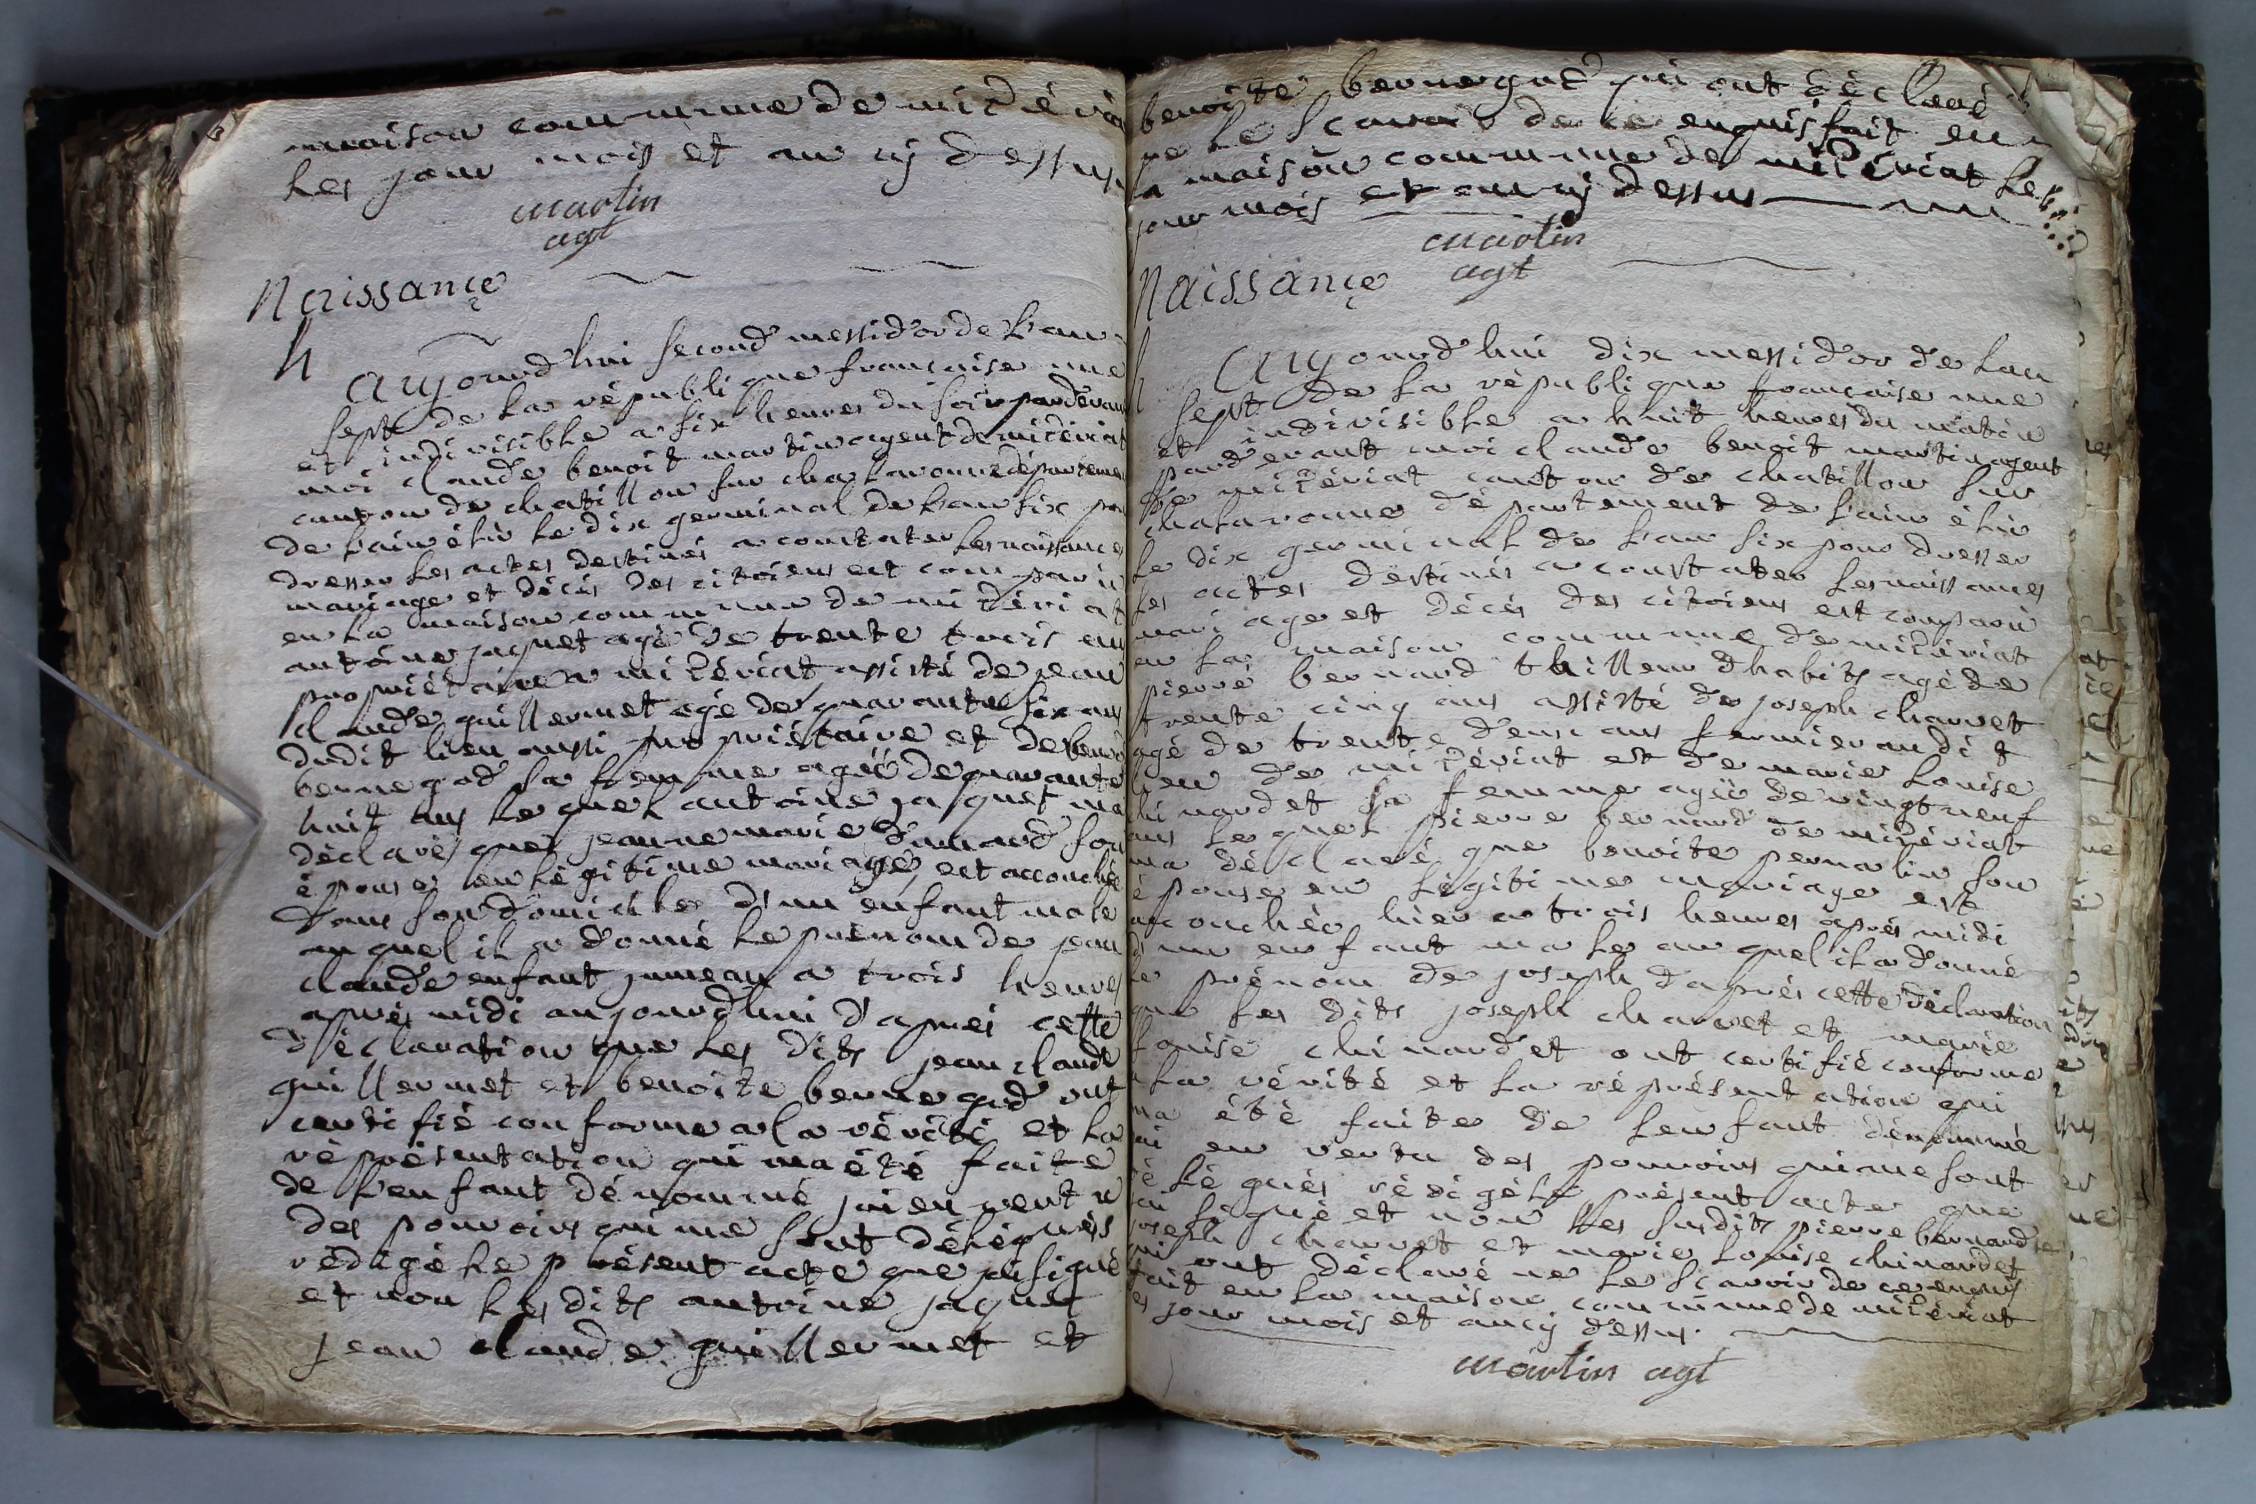 maison commune de miţéria
les jour mois et an cy dessus
martin
agt
Naissançe
h
aujourd'hui second messidor de l'an
sept de la républi que française une
et indivisible a six heures du soir pardevant
moi claude benoit martin agent de miţériat
canton de chatillon sur chalaronne départemen
de l'ain élu le dix germinal de l'an six pou
dresser les actes destinés a constater les naissances
mariage et décés des citoiens est comparu
en la maison commune de miţériat
antoine jaquet agé de trente trois ans
propriétaire a miţériat assisté de jean
claude guillermet agé de quarante six ans
dudit lieu aussi propriétaire et de benoi
bernegod sa femme ageé de quarante
huit ans le quel antoine jaquet ma
déclaré que jeanne marie son
épouse en légitime mariage, est accouchée
dans son domicile d'un enfant male
au quel il a donné le prénom de jean
claude enfant jumeau a trois heures
aprés midi aujourdhui d'aprés cette
déclaration que les dits jean claude
guillermet et benoite bernegod ont
certifié conforme a la vérité et la
réprésentation qui ma été faite
de l'enfant dénommé jai en vertu
des pouvoirs qui me sont délégués
rédigé le présent acte que jai signé
et non les dits antoine jaquet
jean claude guillermet et
benoite bernegod qui ont déclaré
ne le scavoir de ce enquis fait en
la maison commune de miţériat les
jour mois et an cy dessus
martin
agt
Naissançe
h
aujourd'hui dix messidor de lan
sept de la républi que française une
et indivisible a huit heures du matin
pardevant moi claude benoit martin agent
de miţériat canton de chatillon sur
chalaronne département de l'ain élu
le dix germinal de l'an six pour dresser
les actes destinés a constater les naissances
mari age et décés des citoiens est comparu
en la maison commune de miţériat
pierre bernard tailleur d'habits agé de
trente cinq ans assisté de joseph charvet
agé de trente deux ans fermier audit
lieu de miţériat et de marie louise
chinardet sa femme ageé de vingt neuf
ans le quel pierre bernard de miţériat
ma déclaré que benoite pernalin son
épouse en légitime mariage est
accouchée hier a trois heures aprés midi
d'un enfant male au quel il a donné
le prénom de joseph d'aprés cette déclaration
que les dits joseph charvet et marie
louise chinardet ont certifié conforme
a la vérité et la réprésentation qui
ma été faite de l'enfant dénommé
jai en vertu des pouvoirs qui me sont
délégués rédigé le présent acte que
jai signé et non les susdits pierre bernard
joseph charvet et marie louise chinardet
qui ont déclaré ne le scavoir de ce enquis
fait en la maison commune de miţériat
les jour mois et an cy dessus.
martin agt